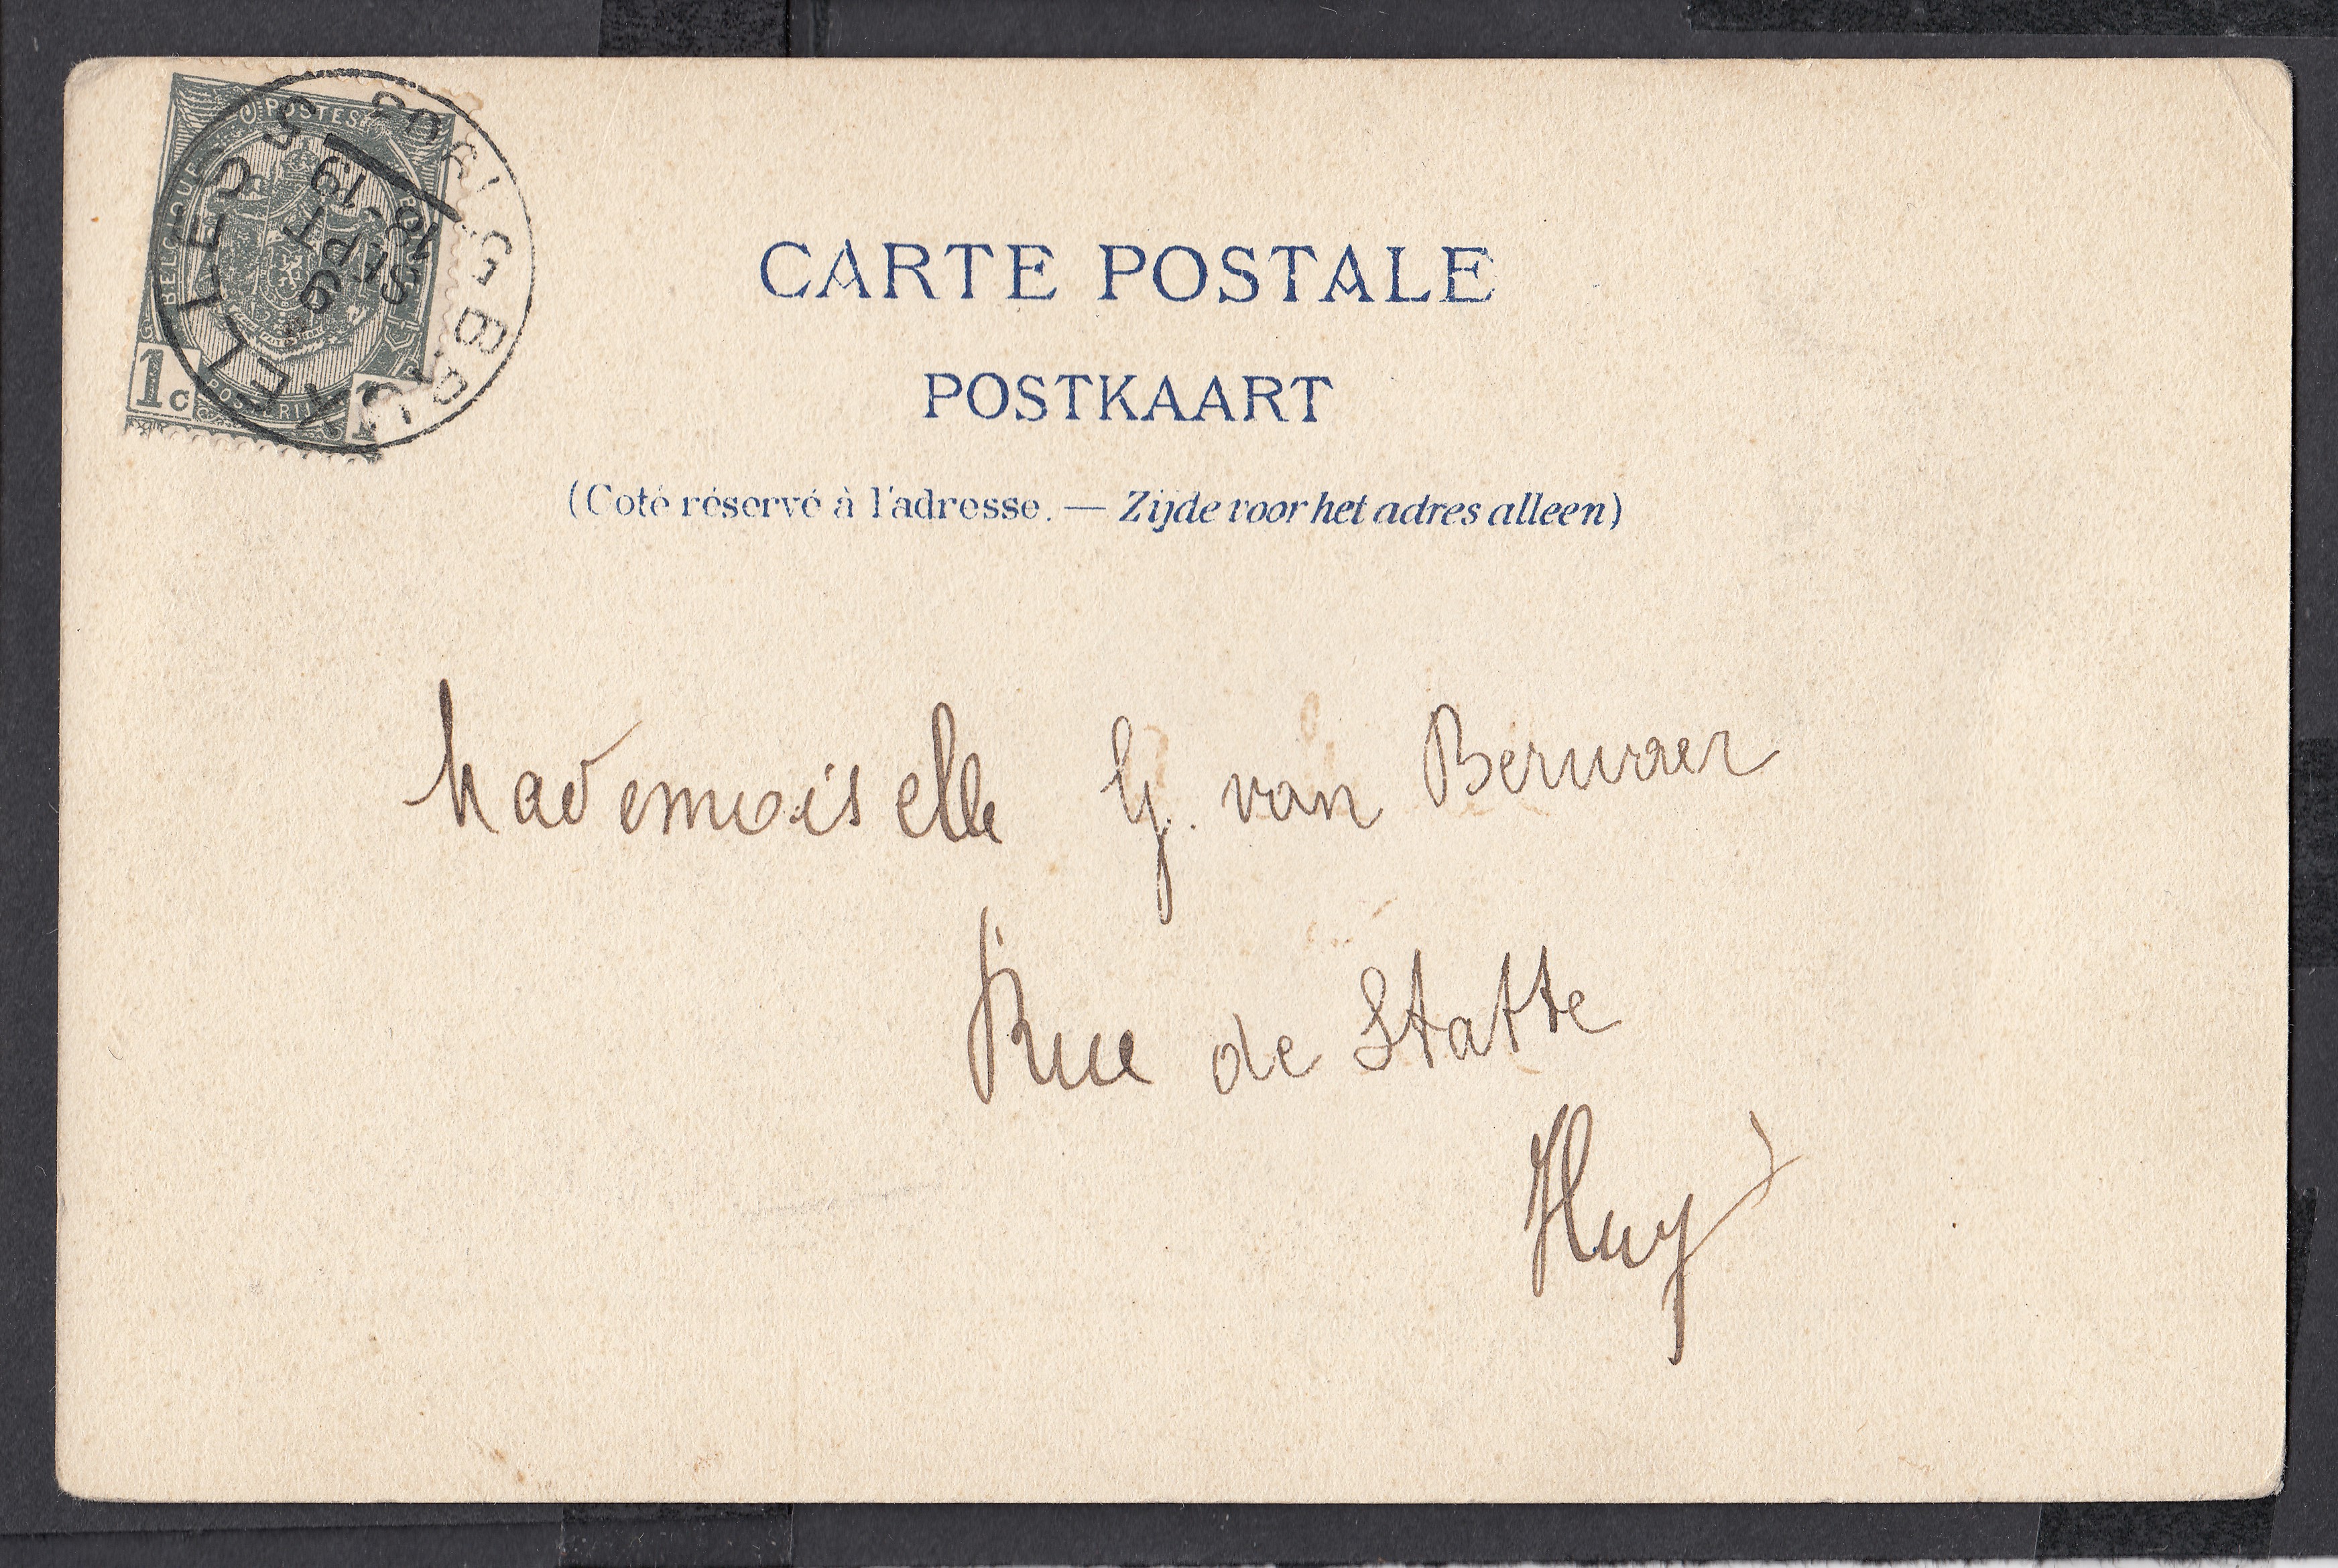 POSTES
BELGIQUE
BELGIË
POSTERIJEN
1c
IXELLES
9
SEPT
18-19
CARTE POSTALE
POSTKAART
(Coté réservé à l'adresse. — Zijde voor het adres alleen)
Mademoiselle G. van Berwaer
Rue de Statte
Huy